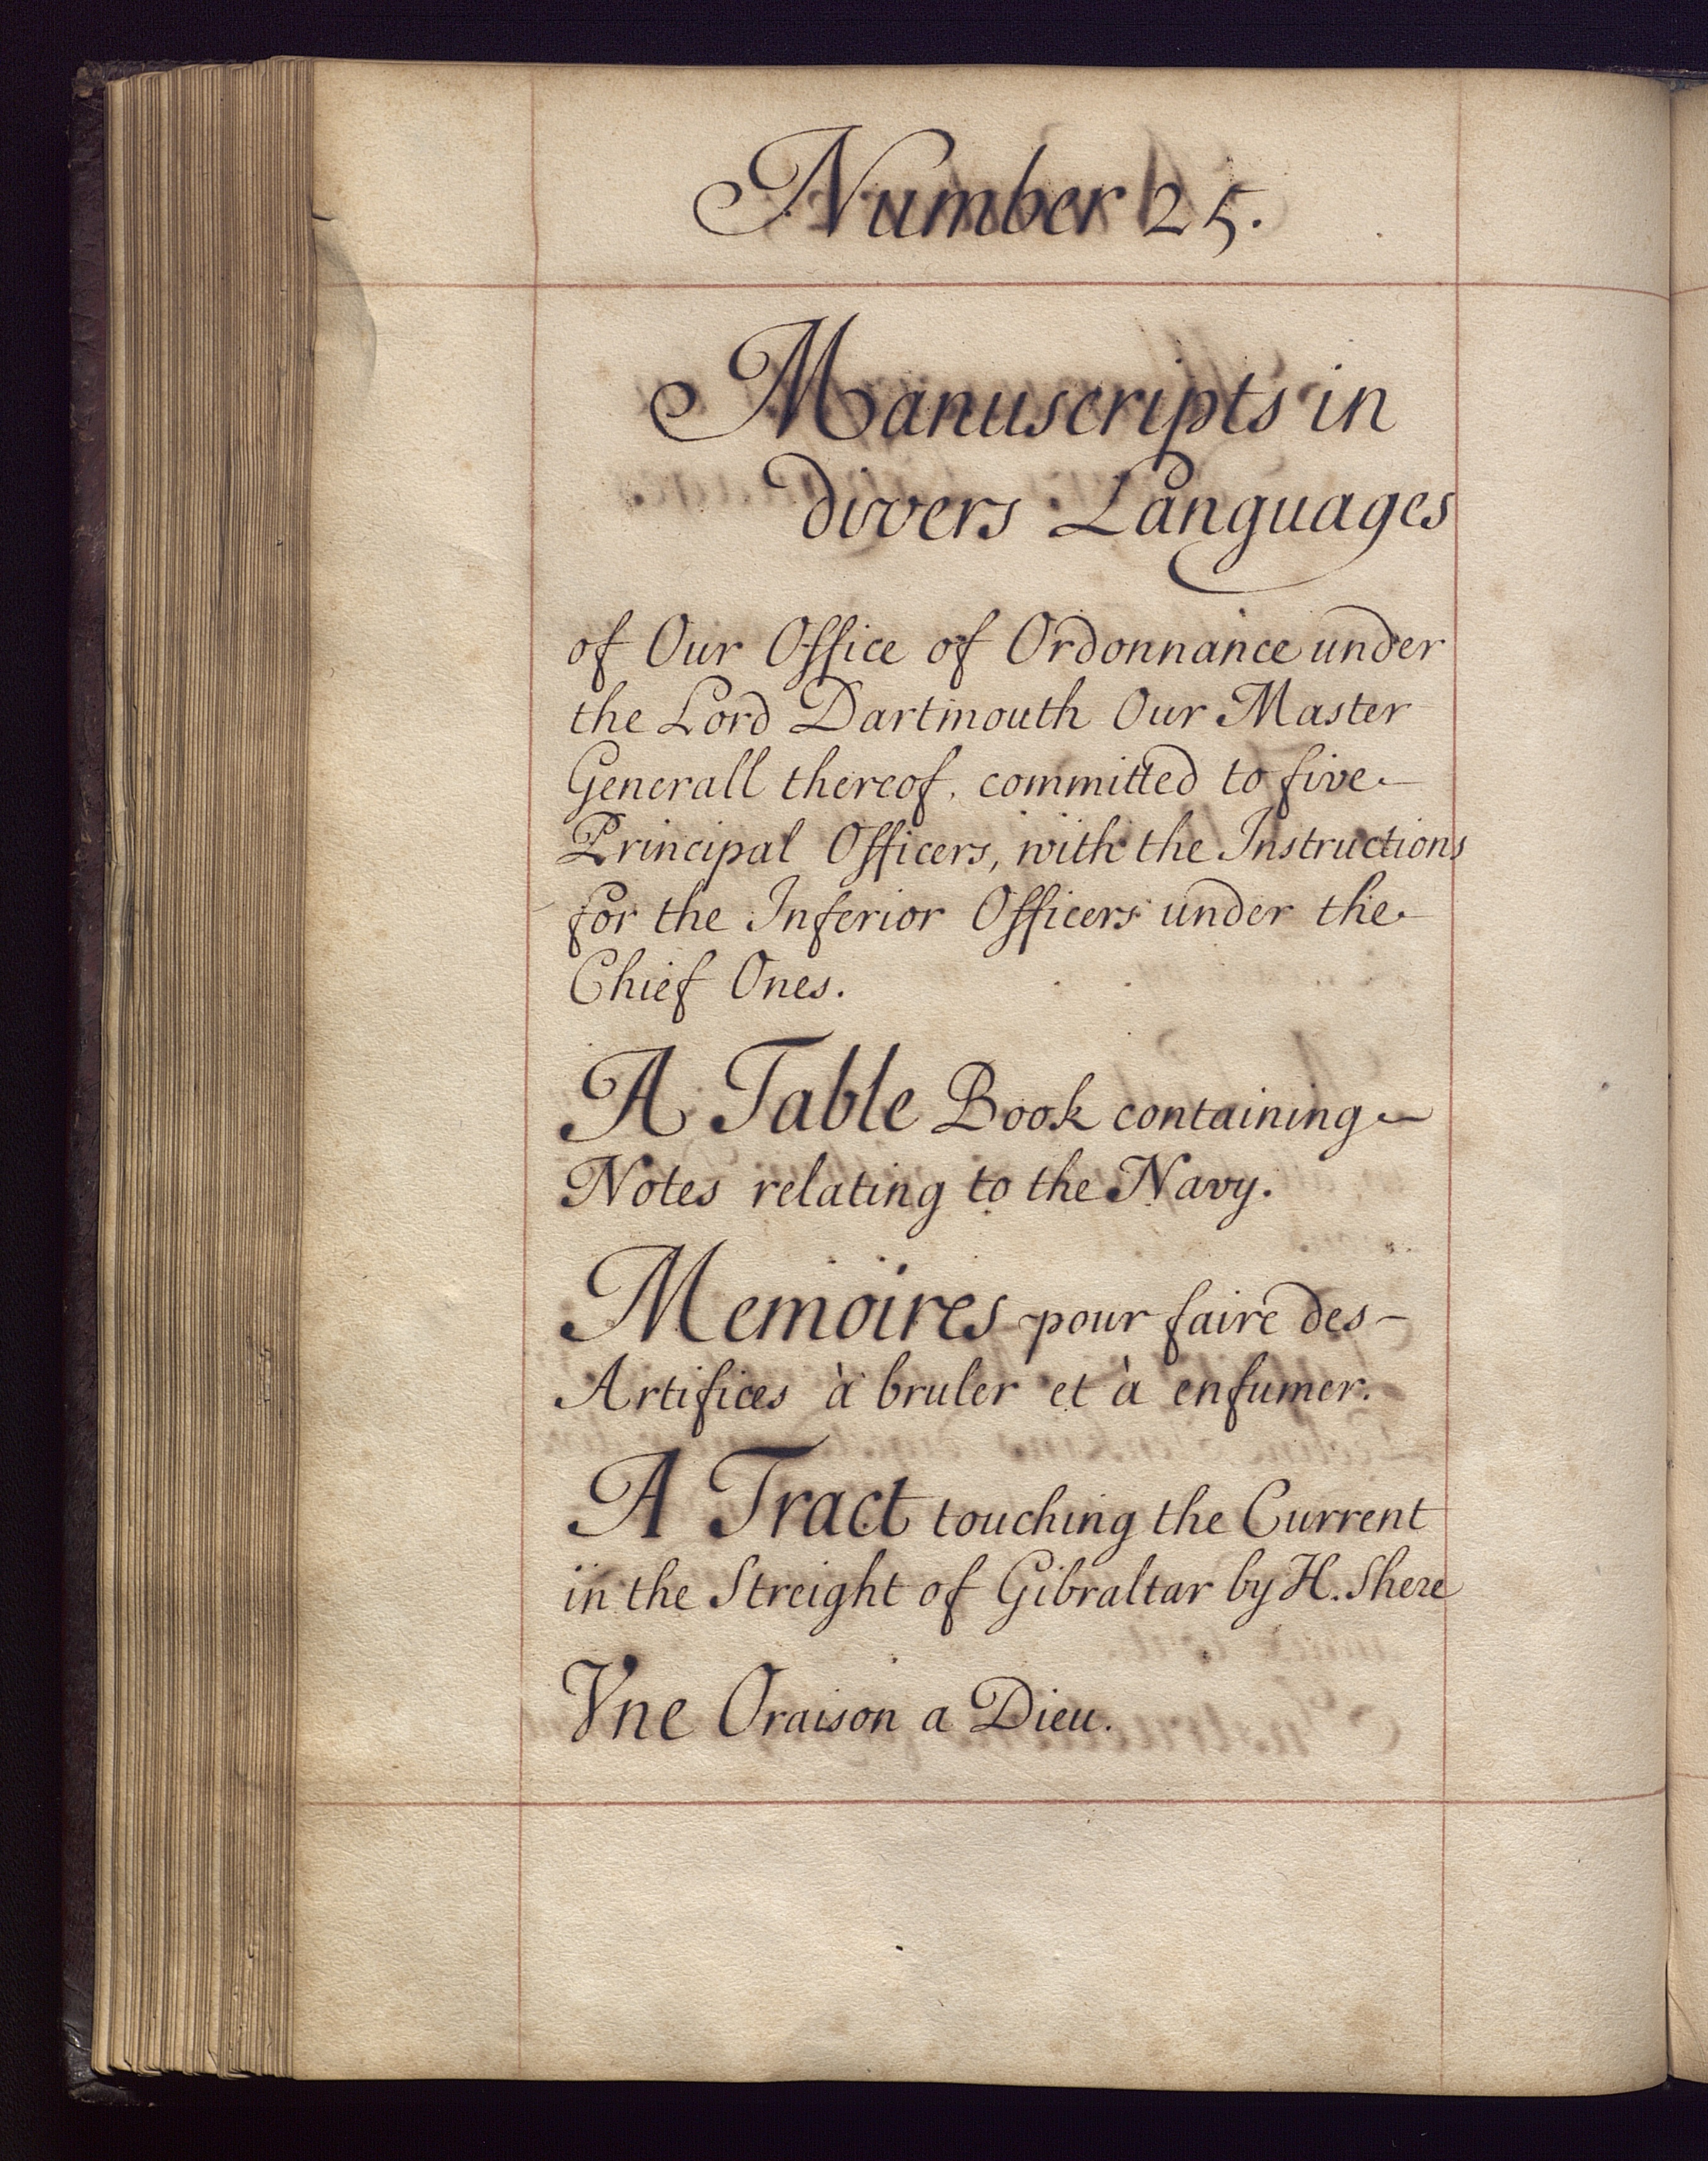 Number 25.
Manuscripts in
divers Languages
of Our Office of Ordonnance under
the Lord Dartmouth Our Master
Generall thereof, committed to five
Principal Officers, with the Instructions
for the Inferior Officers under the
Chief Ones.
A Table Book containing
Notes relating to the Navy.
Memoires pour faire des
Artifices à bruler et à enfumer.
A Tract touching the Current
in the Streight of Gibraltar by H. Shere
Vne Oraison a Dieu.